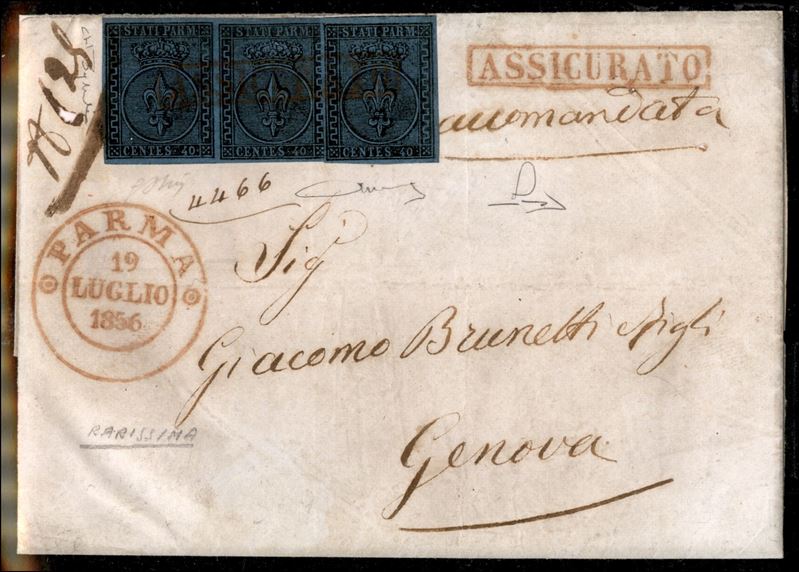 STATI PARM.
CENTES. 40.
STATI PARM.
CENTES. 40.
STATI PARM.
CENTES. 40.
ASSICURATO
4466
PARMA
19
LUGLIO
1856
Sig
Giacomo Brunetti
Genova
RARISSIMA